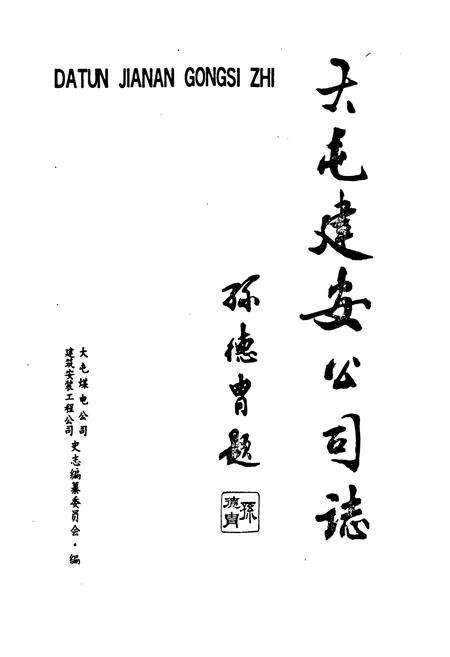 DATUN JIANAN GONGSI ZHI
大屯建安公司誌
孙德胄题
孫德胄
大屯煤电公司
建筑安装工程公司
史志编纂委员会·编